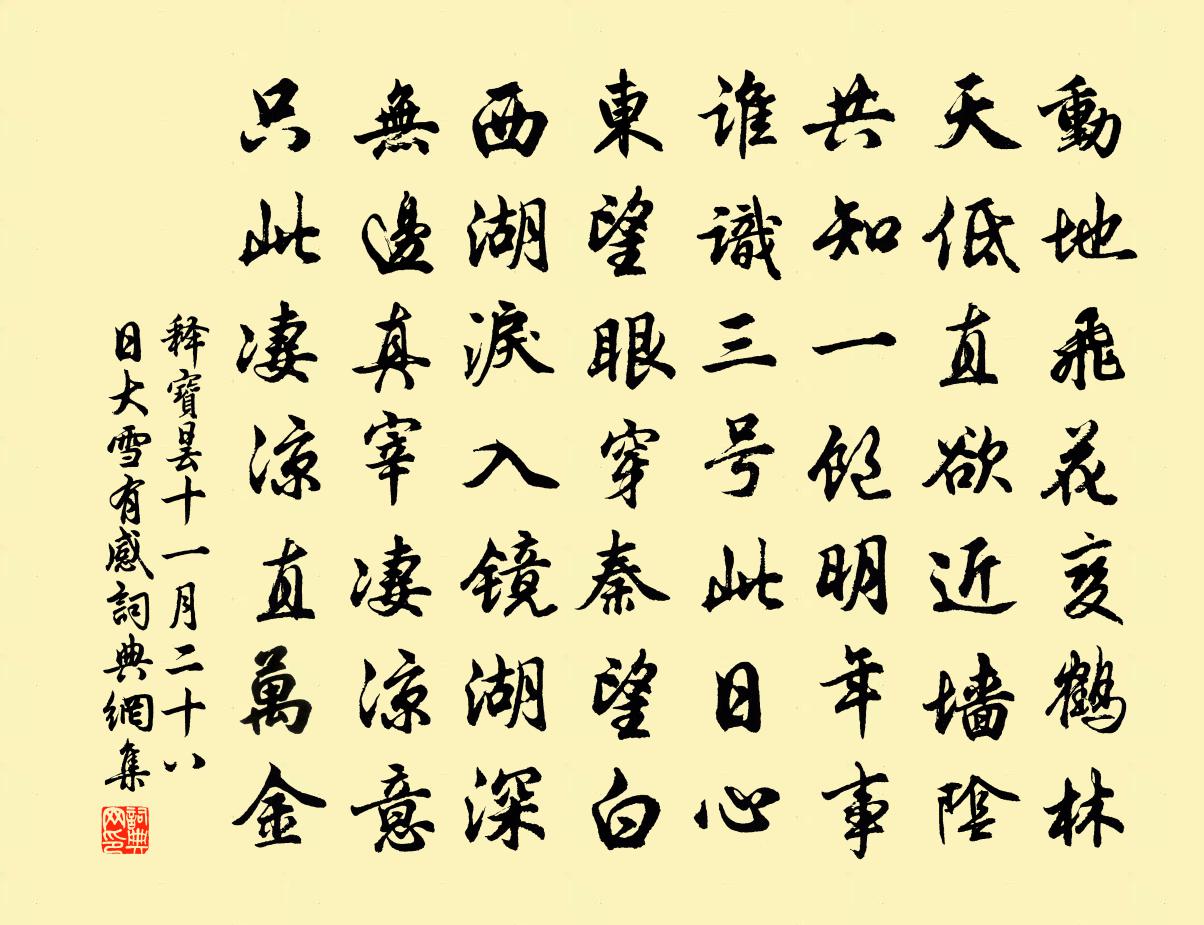 動地飛花变鶴林
天低直欲近墙陰
共知一飽明年事
谁識三号此日心
東望眼穿秦望白
西湖淚入镜湖深
無邊真宰凄涼意
只此凄涼直萬金
释寶昙十一月二十八
日大雪有感詞典網集
詞典
网印